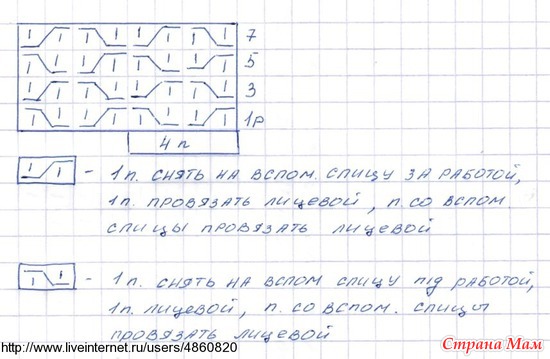 7
5
3
1р
4 п
- 1п. снять на вспом. спицу за работой,
1п. провязать лицевой, п. со вспом
спицы провязать лицевой
- 1п. снять на вспом спицу під работой,
1п. лицевой, п. со вспом. спицы
провязать лицевой
http://www.liveinternet.ru/users/4860820
Страна Мам